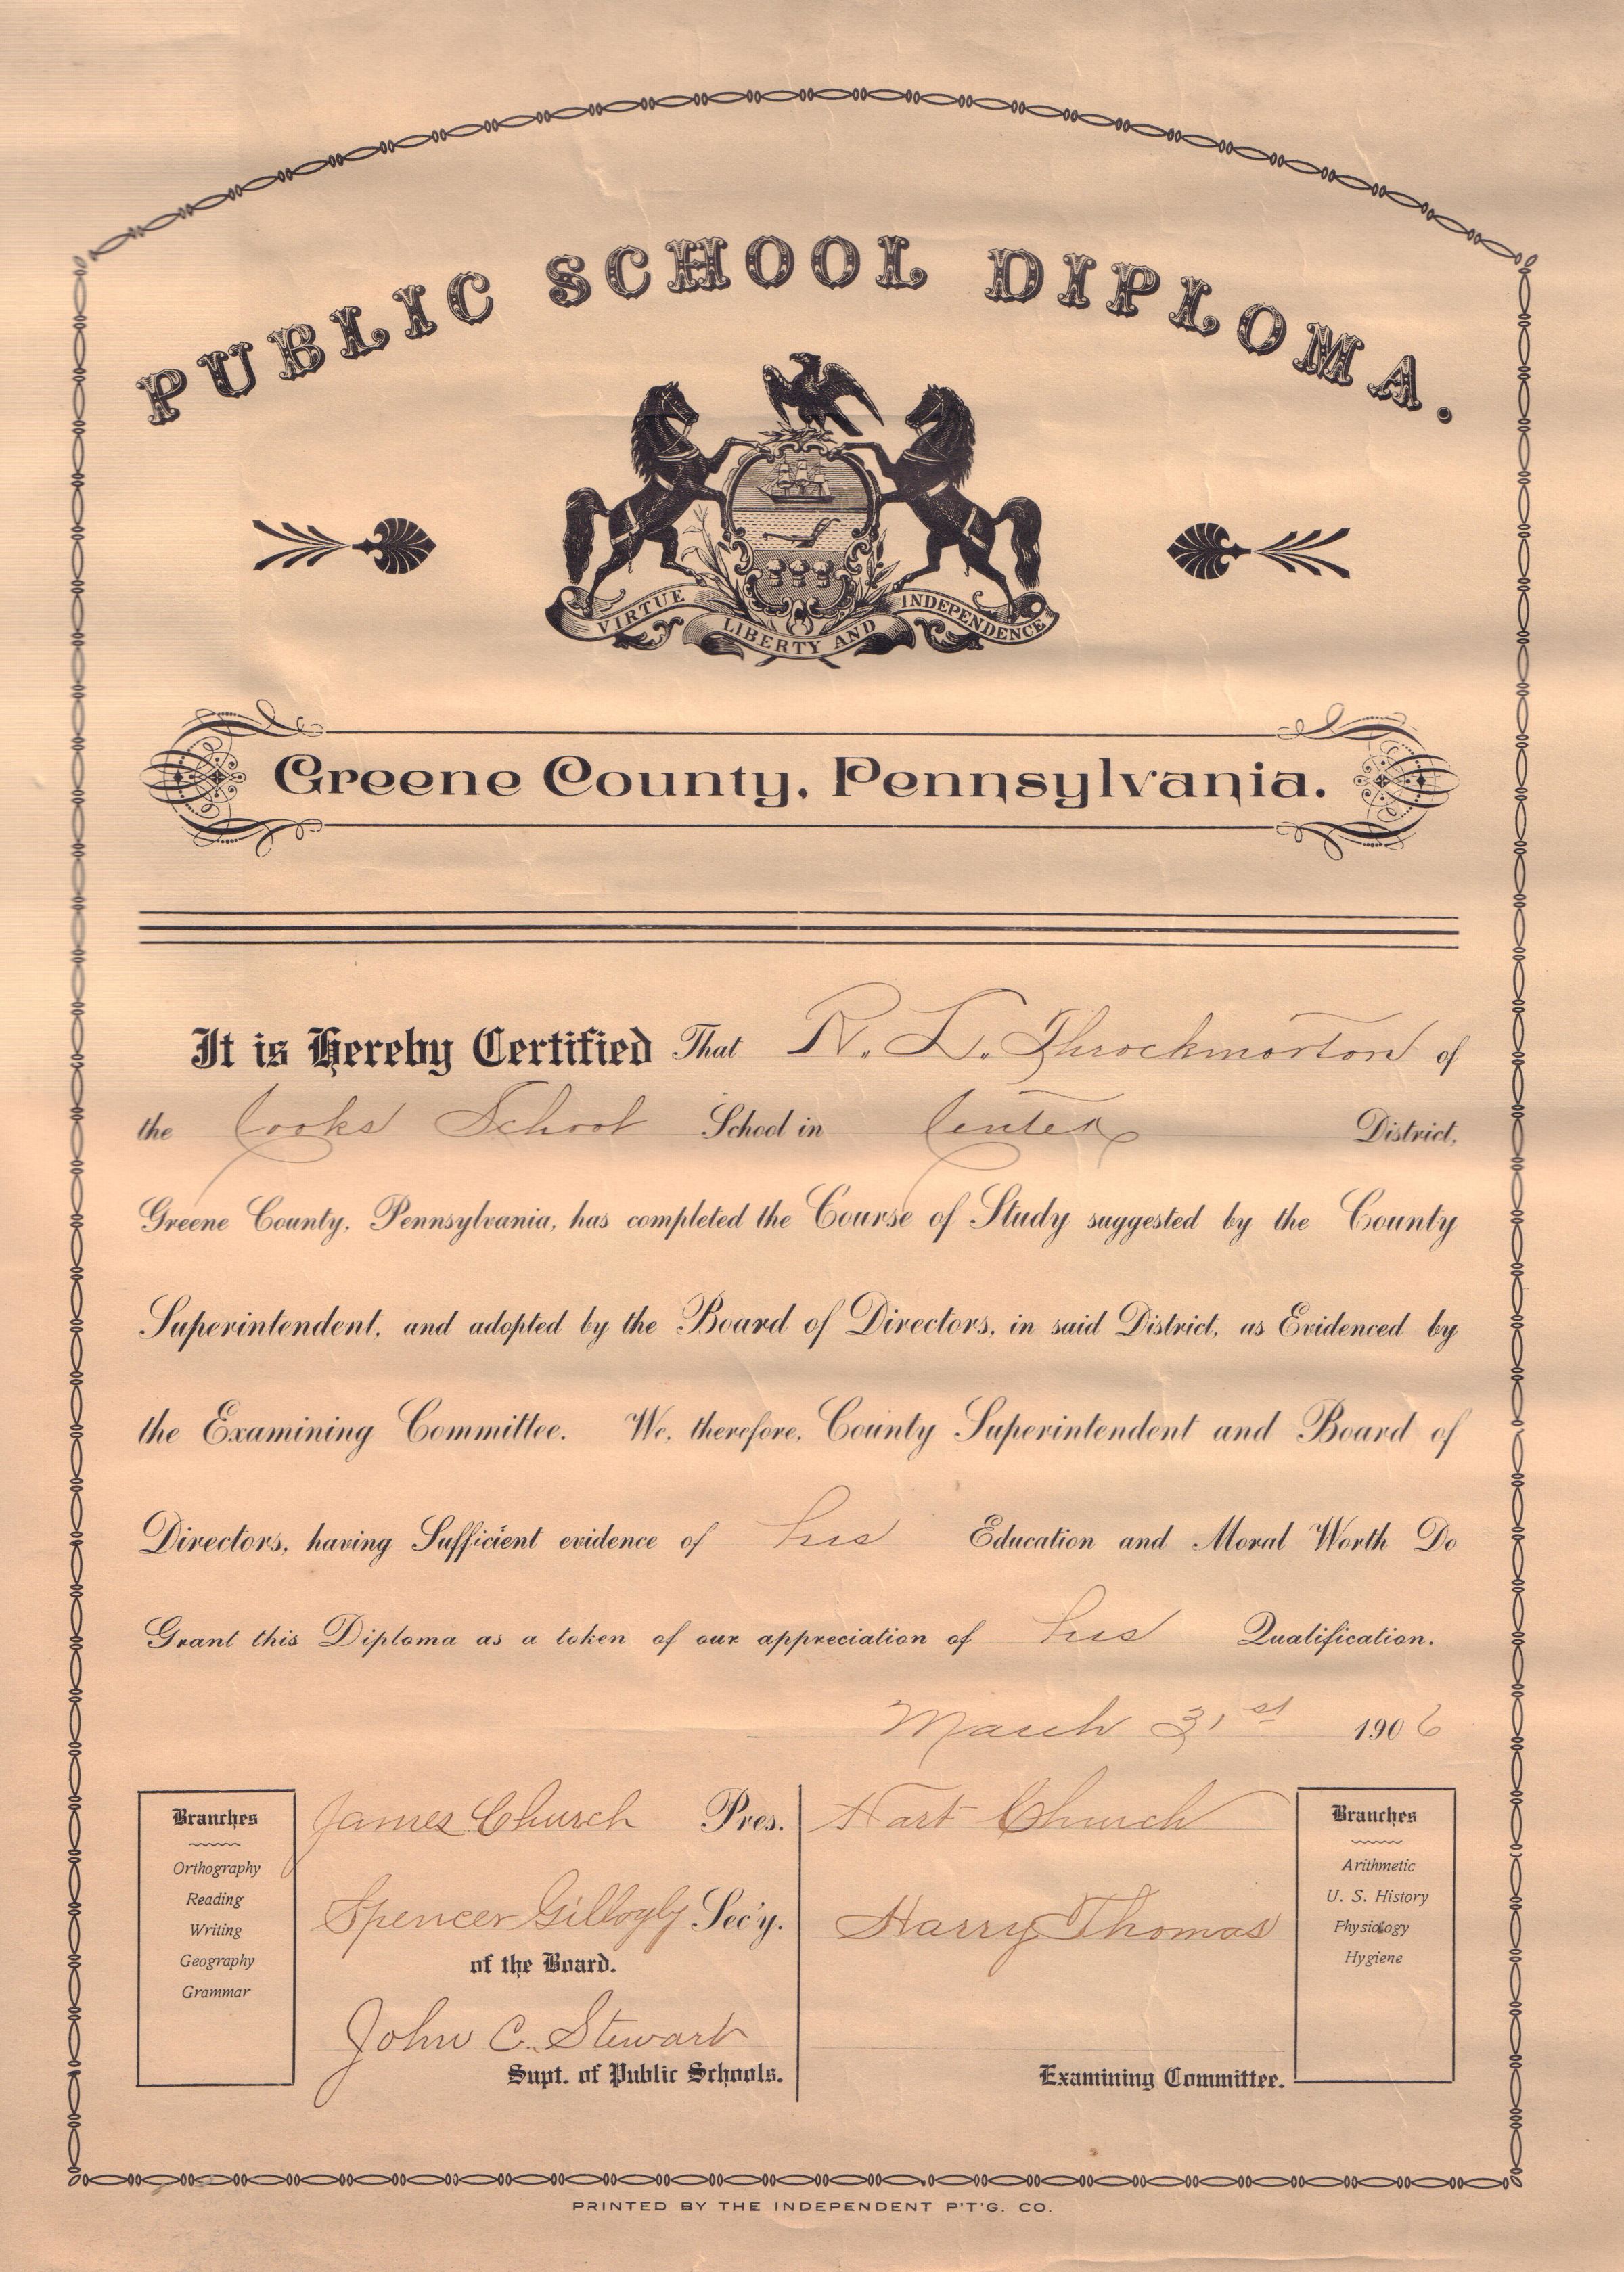 PUBLIC SCHOOL DIPLOMA.
VIRTUE LIBERTY AND INDEPENDENCE
Greene County, Pennsylvania.
It is Hereby Certified That R. L. Throckmorton of
the Cooks School School in Center District,
Greene County, Pennsylvania, has completed the Course of Study suggested by the County
Superintendent, and adopted by the Board of Directors, in said District, as Evidenced by
the Examining Committee. We, therefore, County Superintendent and Board of
Directors, having Sufficient evidence of his Education and Moral Worth Do
Grant this Diploma as a token of our appreciation of his Qualification.
March 31st 1906
Branches
Orthography
Reading
Writing
Geography
Grammar
James Church Pres.
Spencer Sec'y.
of the Board.
John C. Stewart
Supt. of Public Schools.
Hart Church
Harry Thomas
Examining Committee.
Branches
Arithmetic
U. S. History
Physiology
Hygiene
PRINTED BY THE INDEPENDENT P'T'G. CO.